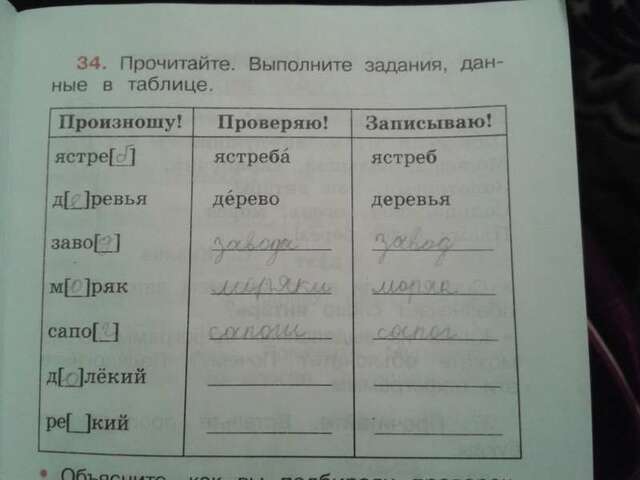 34. Прочитайте. Выполните задания, дан-
ные в таблице.
Произношу! Проверяю! Записываю!
ястре[б] ястреба́ ястреб
д[е]ревья де́рево деревья
заво[д] завода завод
м[о]ряк моряки моряк
сапо[г] сапоги сапог
д[о]лёкий
ре[ ]кий
• Объясните, как вы подбирали проверо